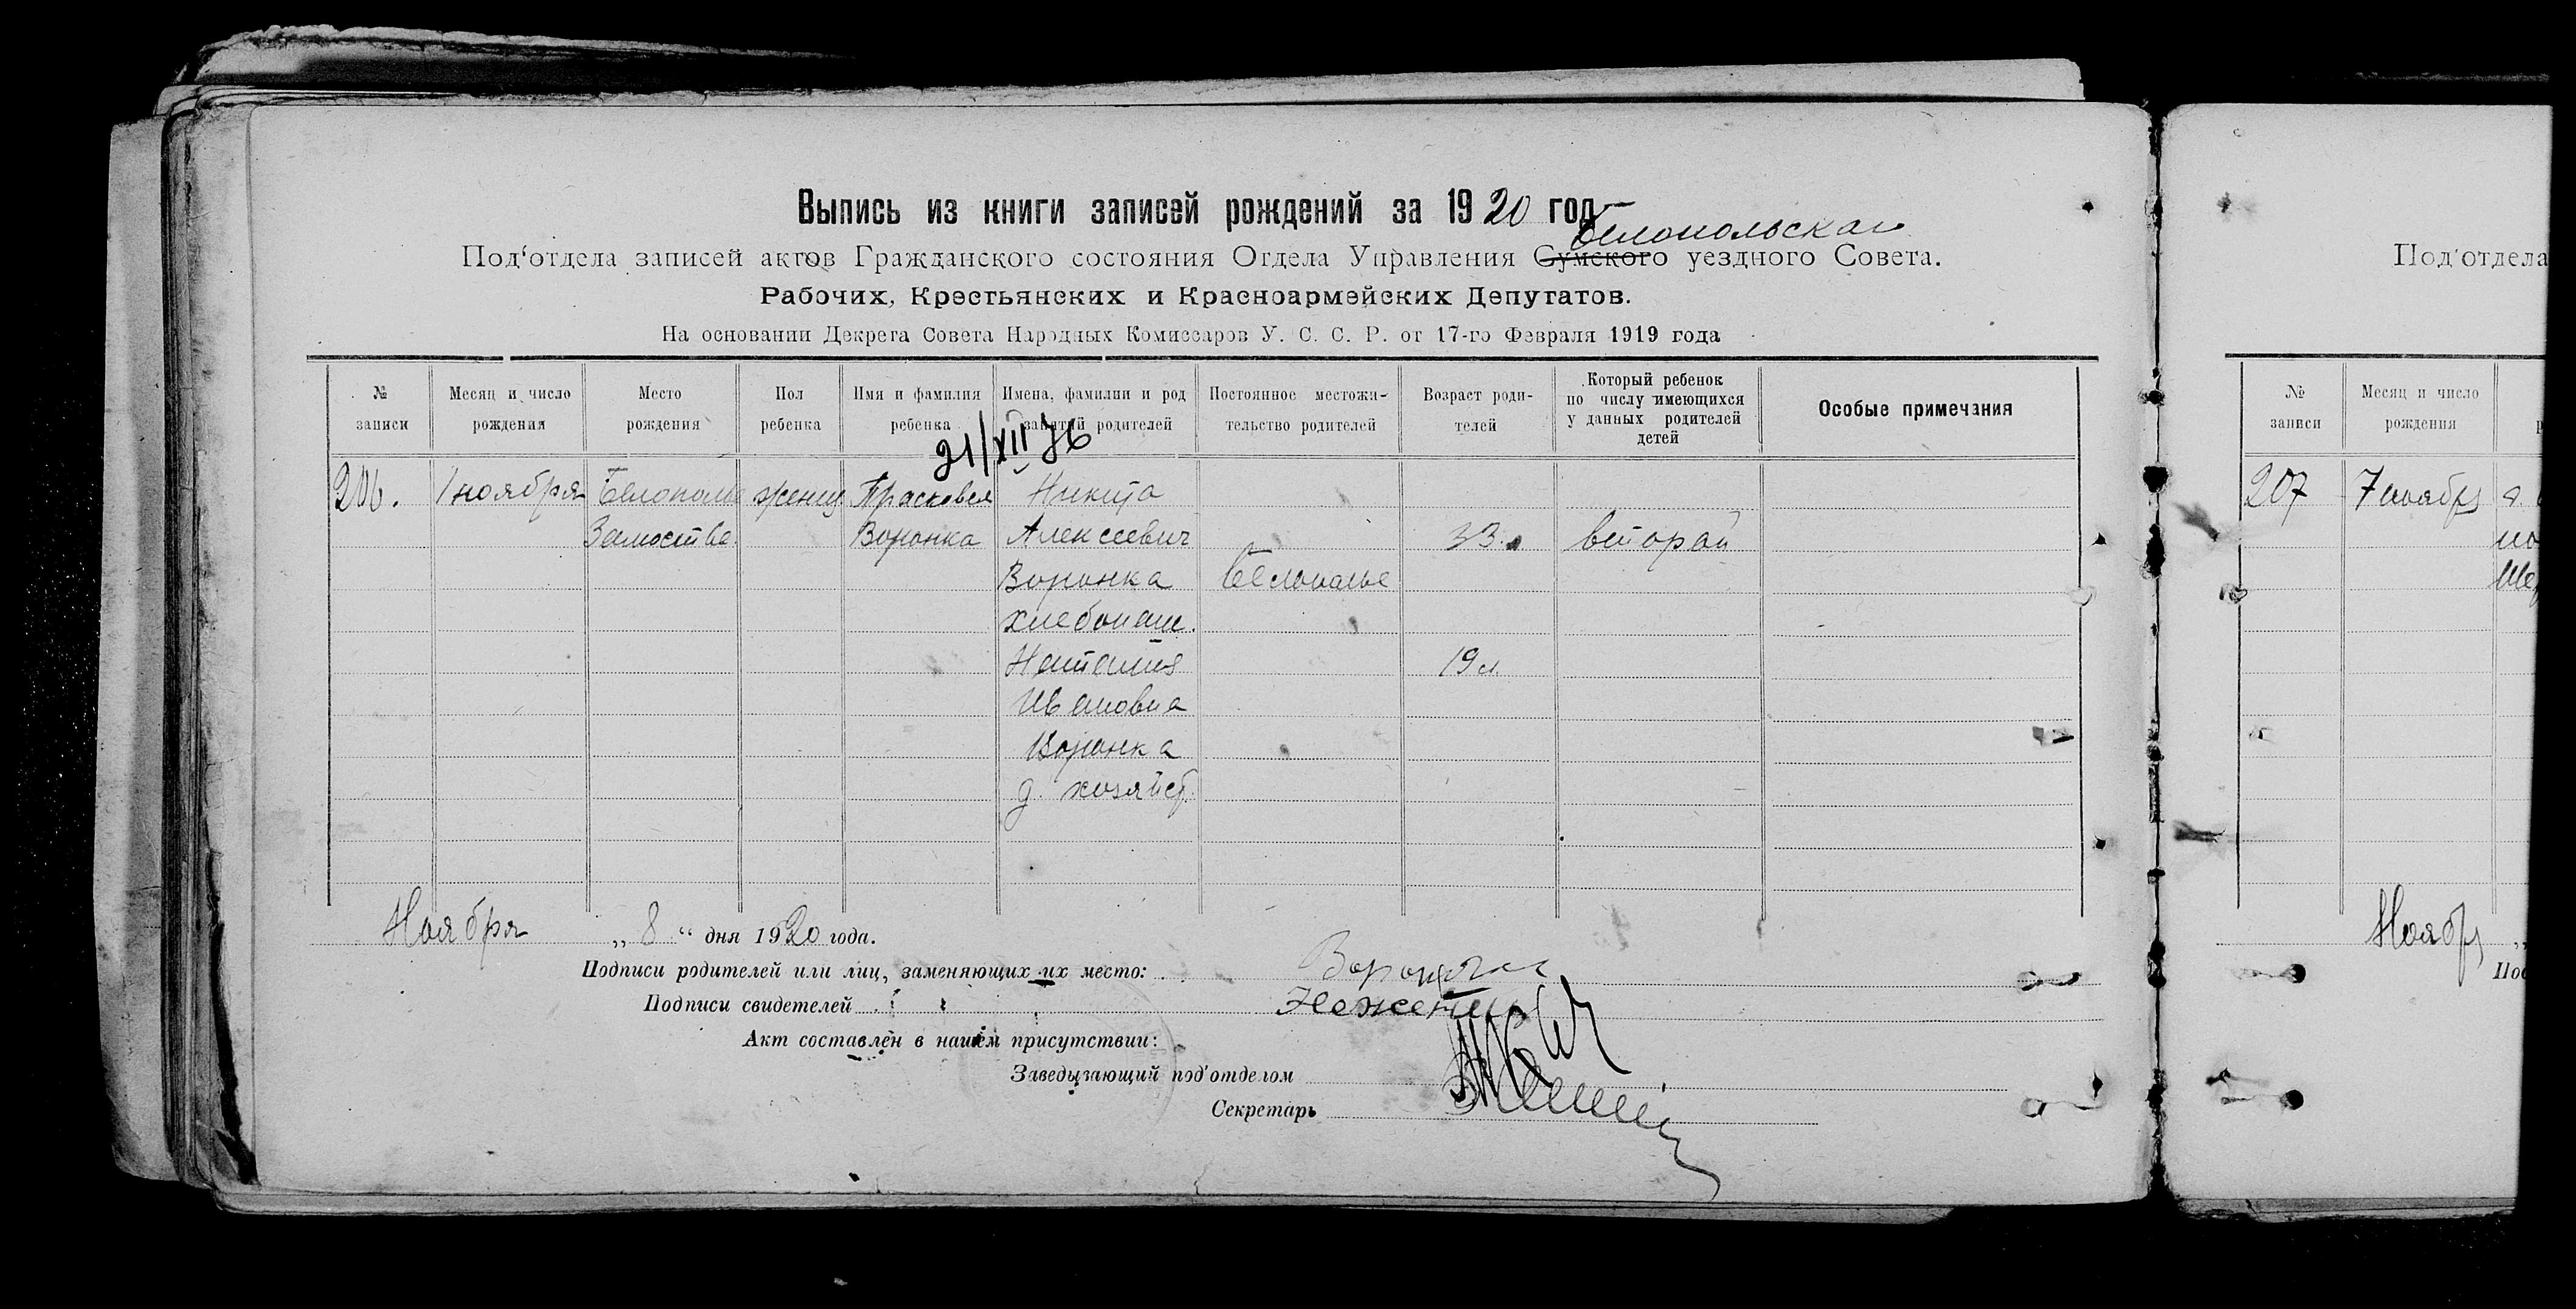 Выпись из книги записей рождений за 1920 год
Белопольская
Под'отдела записей актов Гражданского состояния Отдела Управления Сумского уездного Совета.
Рабочих, Крестьянских и Красноармейских Депутатов.
На основании Декрета Совета Народных Комиссаров У. С. С. Р. от 17-го Февраля 1919 года
№ записи
Месяц и число рождения
Место рождения
Пол ребенка
Имя и фамилия ребенка
Имена, фамилии и род занятий родителей
Постоянное местожительство родителей
Возраст родителей
Который ребенок по числу имеющихся у данных родителей детей
Особые примечания
21/XII 76
206. 1 ноября Белополье женщ Прасковея Никита
Замостье. Воронка Алексеевич 33. второй
Воронка Белополье
хлебопаш.
Наталия 19 л.
Ивановна
Воронка
д. хозяйст.
Ноября „ 8 “ дня 1920 года.
Подписи родителей или лиц, заменяющих их место:
Подписи свидетелей
Акт составлен в нашем присутствии:
Заведывающий под'отделом
Секретарь
Под'отдела
№ записи
Месяц и число рождения
207 7 ноября
Ноябр